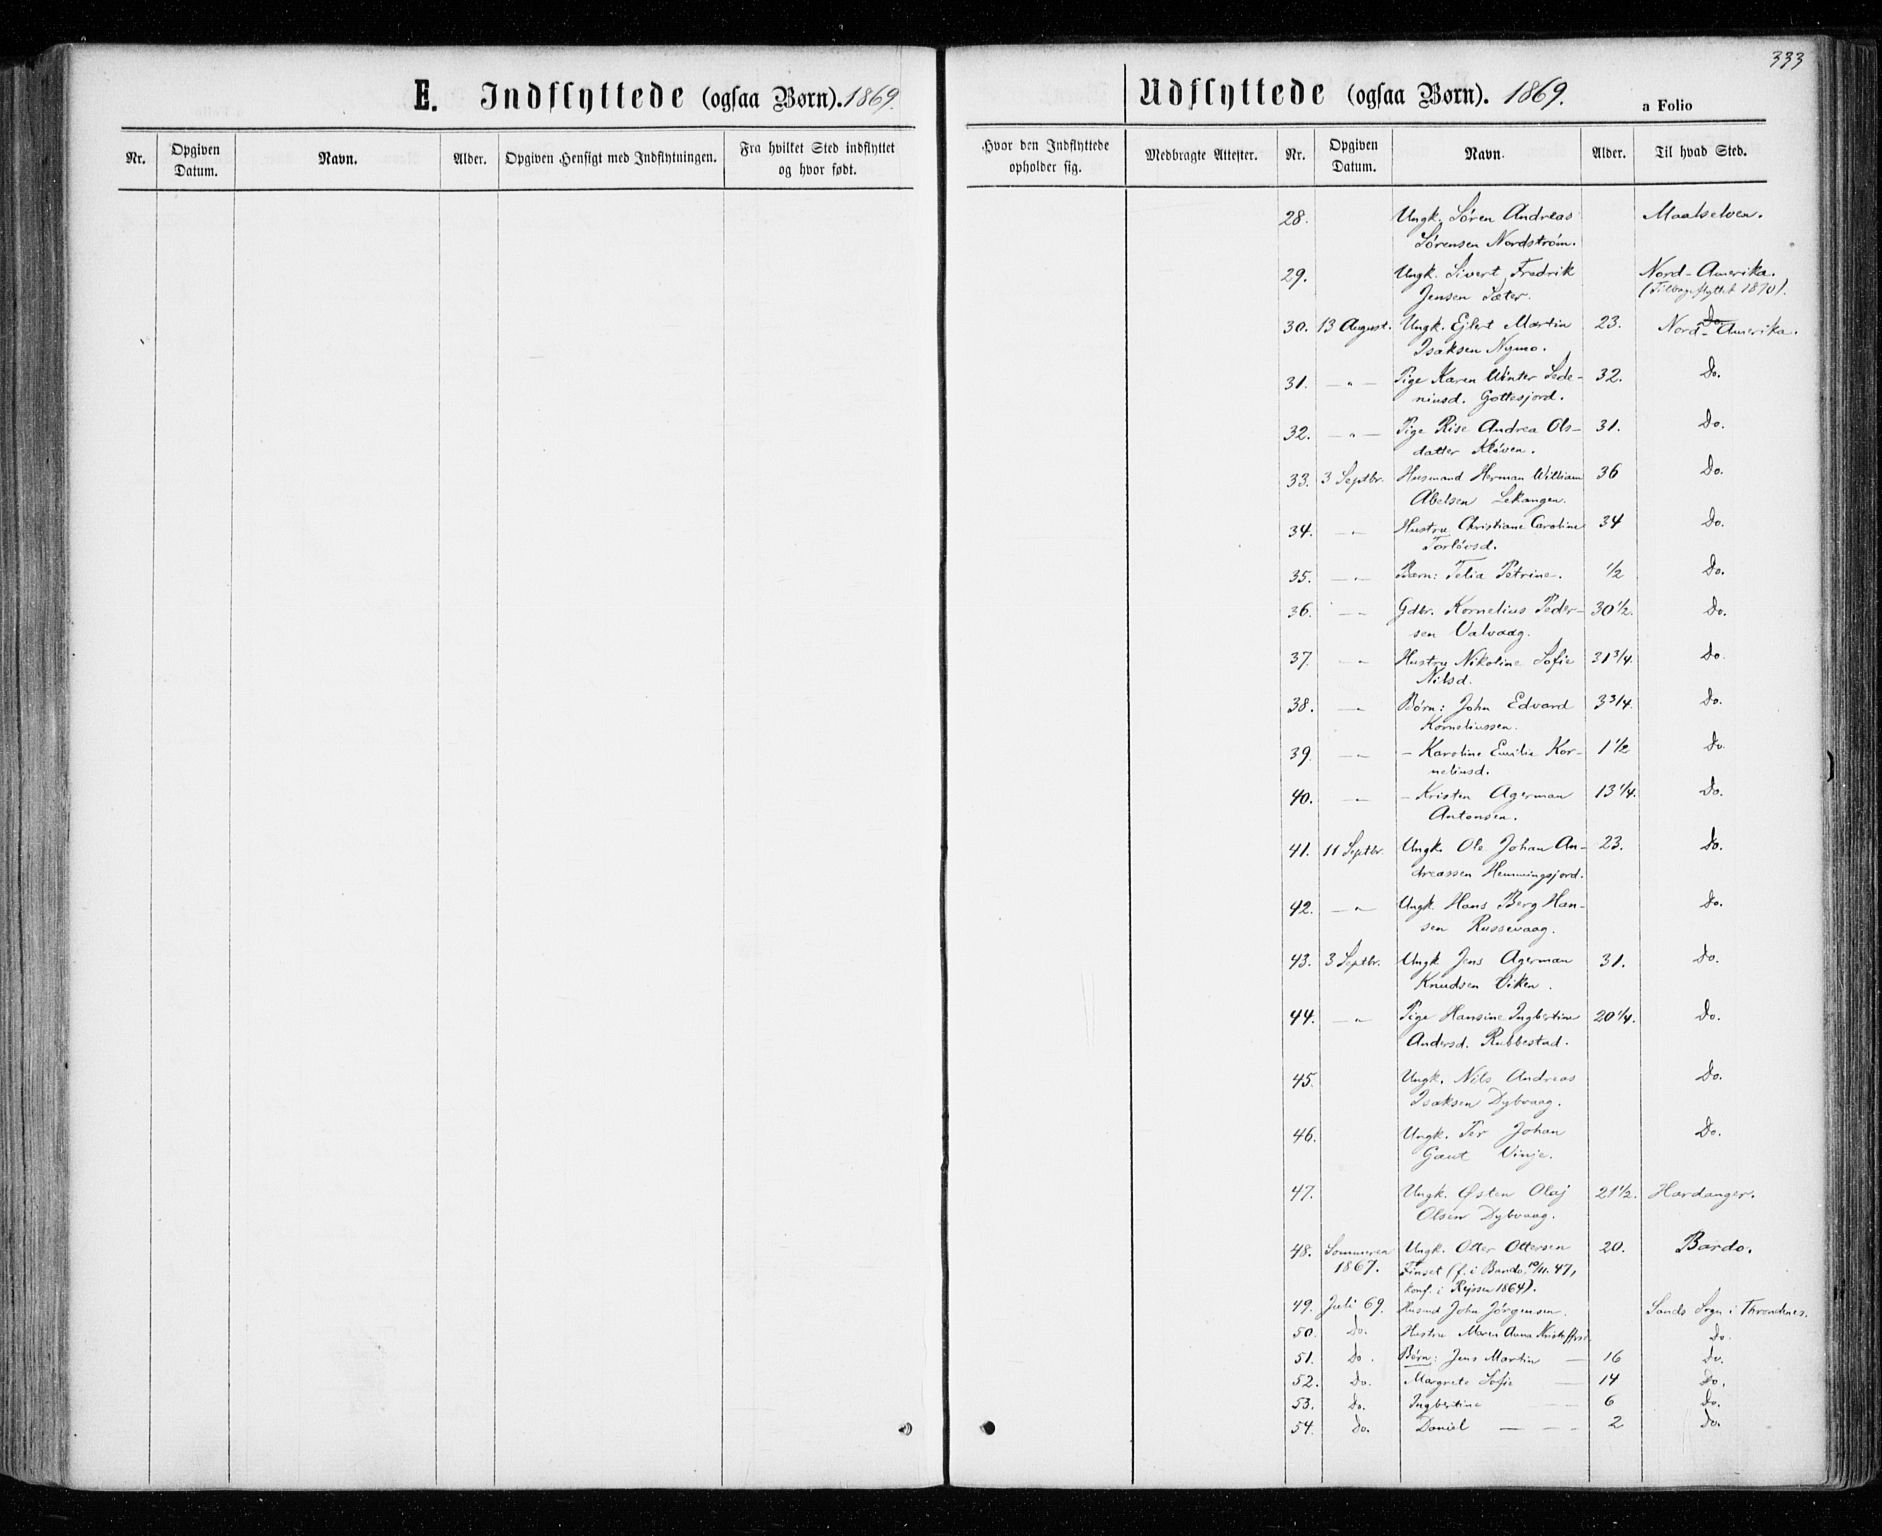 333
E. Indflyttede (ogsaa Børn). 1869.
Udflyttede (ogsaa Børn). 1869.
a Folio
Nr.
Opgiven Datum.
Navn.
Alder.
Opgiven Hensigt med Indflytningen.
Fra hvilket Sted indflyttet og hvor født.
Hvor den Indflyttede opholder sig.
Medbragte Attester.
Nr.
Opgiven Datum.
Navn.
Alder.
Til hvad Sted.
28. Ungk. Søren Andreas Maalselven.
Sørensen Nordstrøm.
29. Ungk. Sivert Fredrik Nord-Amerika.
Jensen Sæter. (Tilbageflyttet 1870).
30. 13 August. Ungk. Ejlert Martin 23. Nord-Amerika.
Isaksen Nymo.
31. — " — Pige Karen Winter Sede- 32. Do.
niusd. Gottesjord.
32. — " — Pige Rise Andrea Ols- 31. Do.
datter Kløven.
33. 3 Septbr. Husmand Herman William 36 Do.
Abelsen Lekangen.
34. — " — Hustru Christiane Caroline 34 Do.
Torløvsd.
35. — " — Barn: Telia Petrine. 1/2 Do.
36. — " — Gdbr. Kornelius Peder- 30 1/2. Do.
sen Valvaag.
37. — " — Hustru Nikoline Sofie 31 3/4. Do.
Nilsd.
38. — " — Børn: John Edvard 3 3/4. Do.
Korneliussen.
39. — " — - Karoline Emilie Kor- 1 1/2 Do.
neliusd.
40. — " — - Kristen Agerman 13 1/4. Do.
Antonsen.
41. 11 Septbr. Ungk. Ole Johan An- 23. Do.
dreassen Hemmingsjord.
42. — " — Ungk. Hans Berg Han- Do.
sen Russevaag.
43. 3 Septbr. Ungk Jens Agerman 31. Do.
Knudsen Viken.
44. — " — Pige Hansine Ingbertine 20 1/4. Do.
Andersd. Rubbestad.
45. Ungk. Nils Andreas Do.
Isaksen Dybvaag.
46. Ungk. Per Johan Do.
Gaut Vinje.
47. Ungk. Østen Olaj 21 1/2. Hardanger.
Olsen Dybvaag.
48. Sommeren Ungk. Otter Ottersen 20. Bardo.
1867. Finset (f. i Bardo 10/11. 47,
konf. i Rejssen 1864).
49. Juli 69. Husmd John Jørgensen. Sands Sogn i Throndenes.
50. Do. Hustru Maren Anna Do.
51. Do. Børn: Jens Martin — 16 Do.
52. Do. Margrete Sofie — 14 Do.
53. Do. Ingbertine — 6 Do.
54. Do Daniel — — 2 Do.